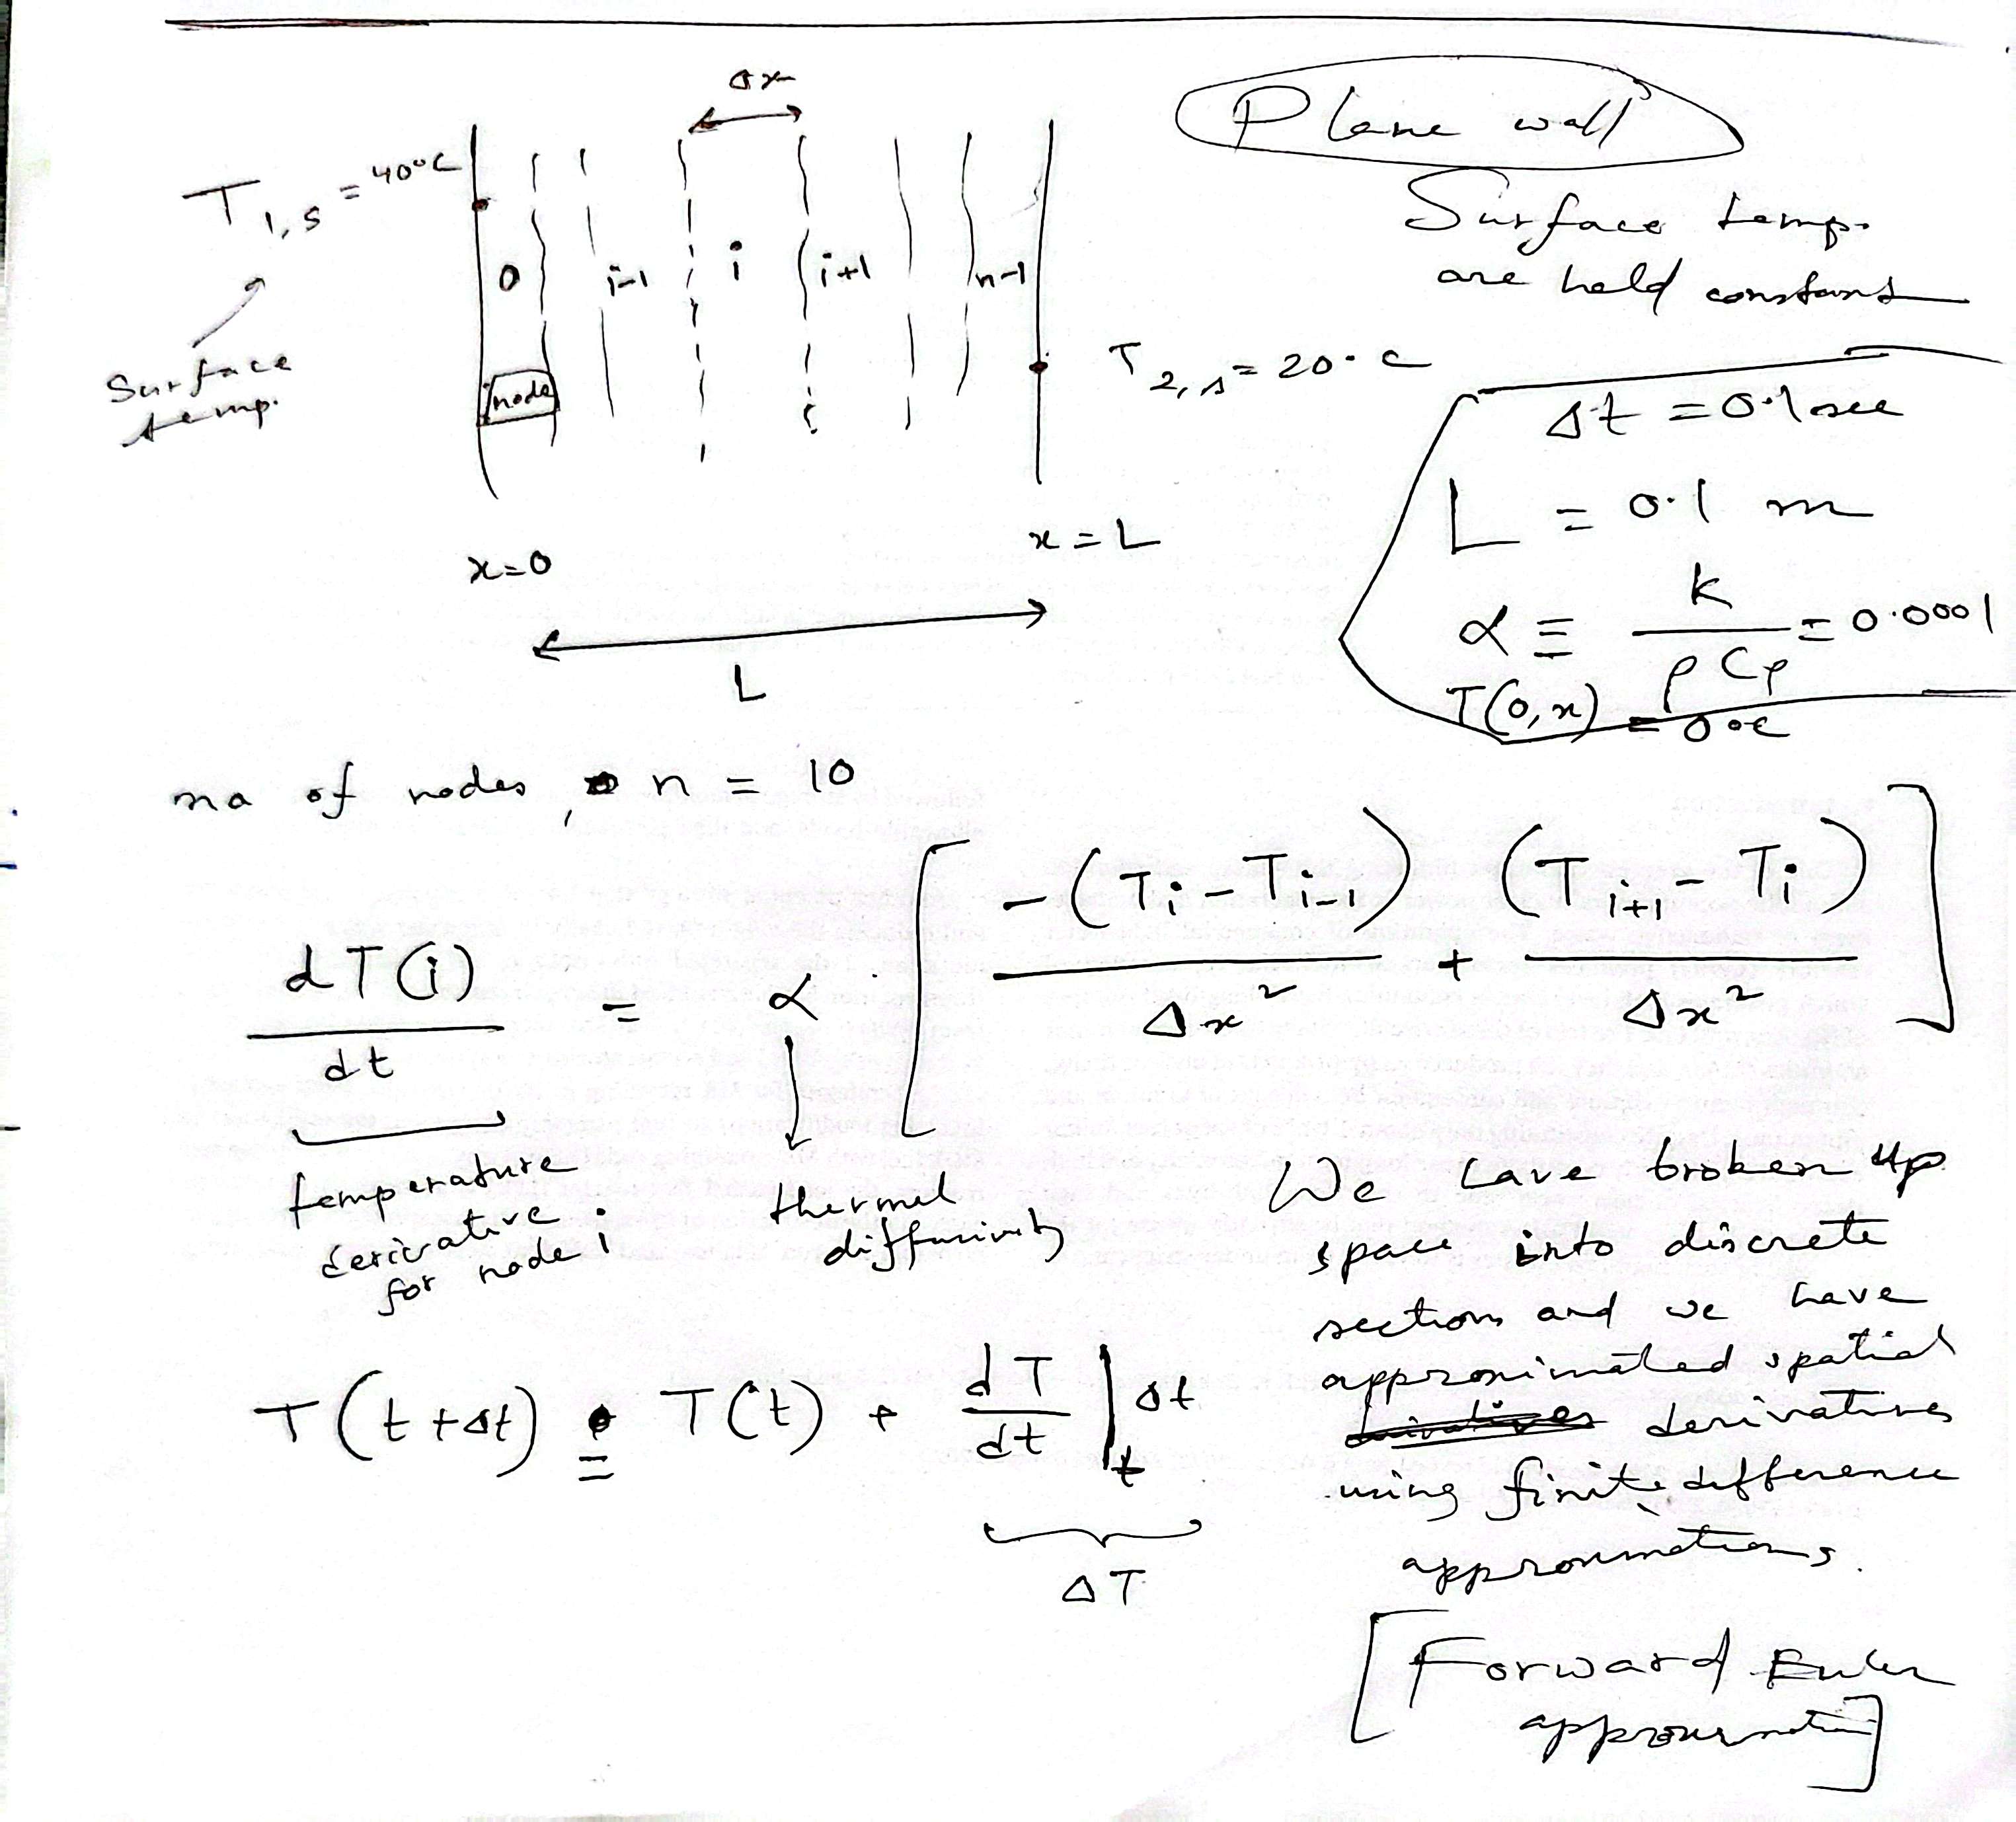 Δx
Plane wall
T1,s = 40°C
Surface temp.
are held constant
0 i-1 i i+1 n-1
Surface
temp.
node
T2,s = 20°C
Δt = 0.1 sec
L = 0.1 m
x=0
x=L
α ≡ k / ρCp = 0.0001
L
T(0,x) = 0°C
no of nodes, n = 10
dT(i)/dt = α · [ -(Ti - Ti-1)/Δx² + (Ti+1 - Ti)/Δx² ]
temperature
derivative
for node i
thermal
diffusivity
We have broken up
space into discrete
sections and we have
approximated spatial
derivatives derivatives
using finite difference
approximations.
T(t+Δt) = T(t) + dT/dt |t Δt
ΔT
[Forward Euler
approximation]